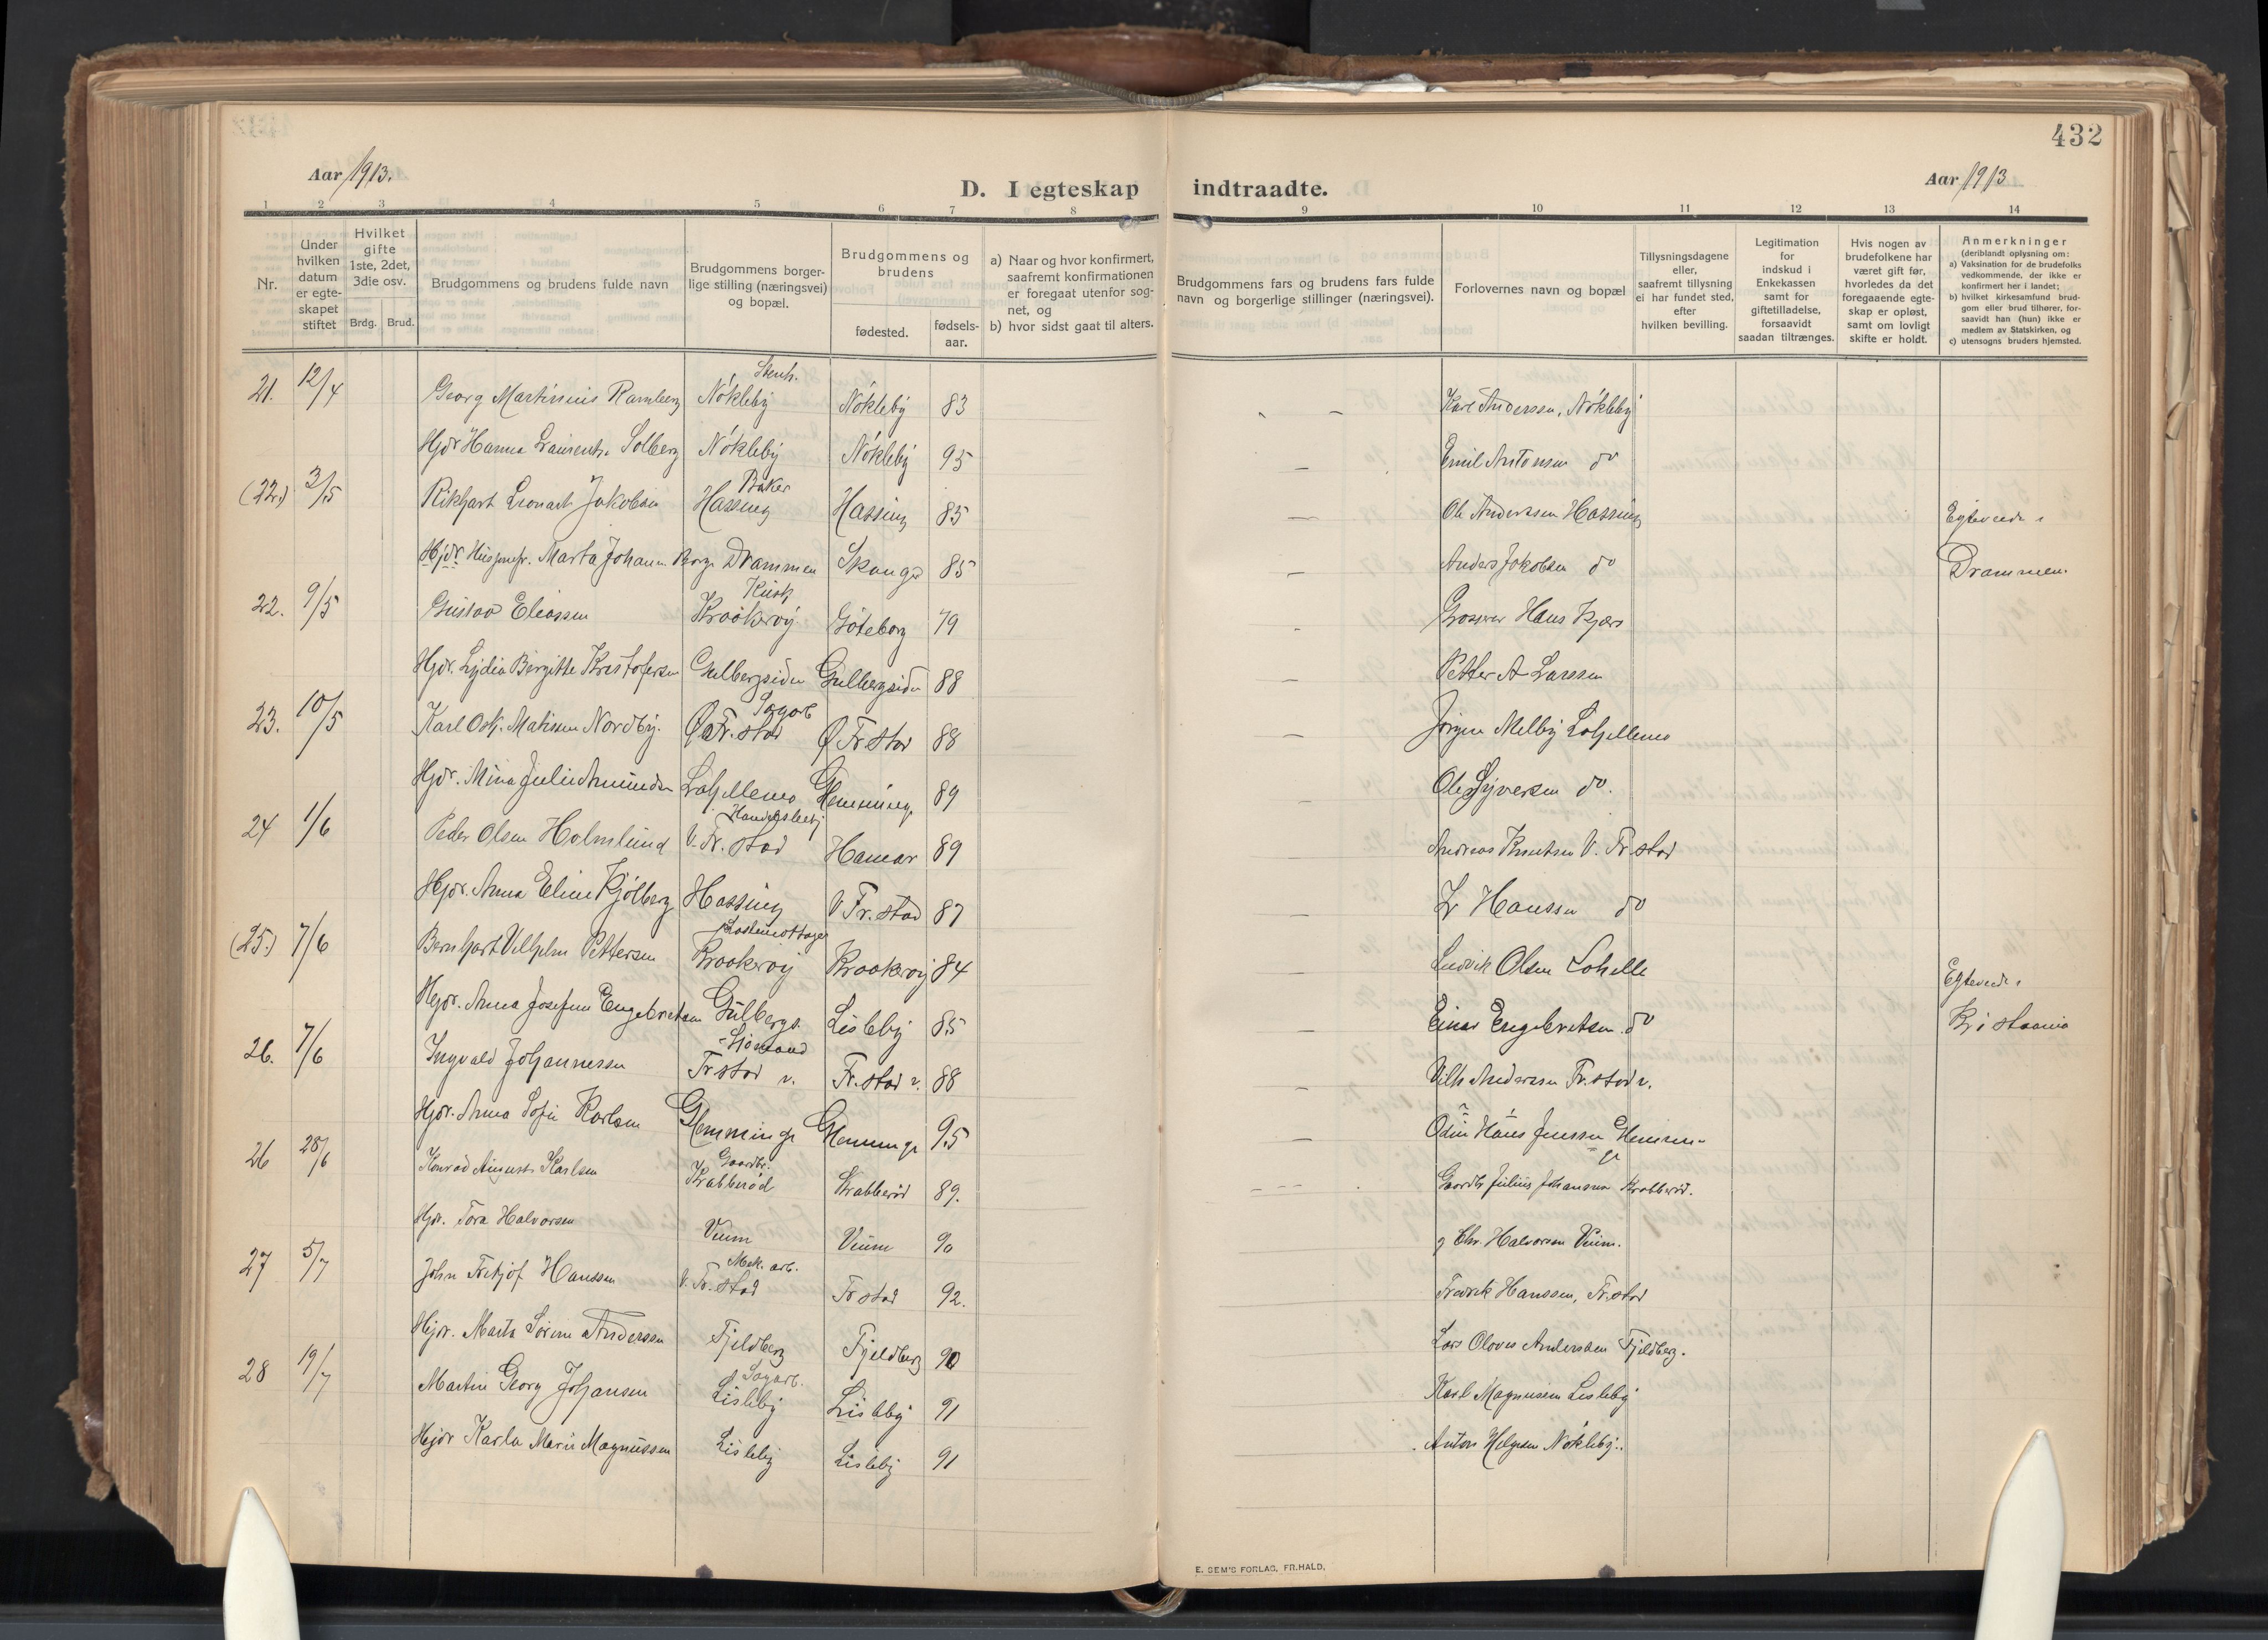 432
Aar 1913.
D. I egteskap indtraadte.
Aar 1913
1 2 3 4 5 6 7 8 9 10 11 12 13 14
Nr.
Under hvilken datum er egte-skapet stiftet
Hvilket gifte 1ste, 2det, 3die osv.
Brdg. Brud.
Brudgommens og brudens fulde navn
Brudgommens borger-lige stilling (næringsvei) og bopæl.
Brudgommens og brudens
fødested.
fødsels-aar.
a) Naar og hvor konfirmert, saafremt konfirmationen er foregaat utenfor sog-net, og
b) hvor sidst gaat til alters.
Brudgommens fars og brudens fars fulde navn og borgerlige stillinger (næringsvei).
Forlovernes navn og bopæl
Tillysningsdagene eller, saafremt tillysning ei har fundet sted, efter hvilken bevilling.
Legitimation for indskud i Enkekassen samt for giftetilladelse, forsaavidt saadan tiltrænges.
Hvis nogen av brudefolkene har været gift før, hvorledes da det foregaaende egte-skap er opløst, samt om lovligt skifte er holdt.
Anmerkninger (deriblandt oplysning om:
a) Vaksination for de brudefolks vedkommende, der ikke er konfirmert her i landet;
b) hvilket kirkesamfund brud-gom eller brud tilhører, for-saavidt han (hun) ikke er medlem av Statskirken, og
c) utensogns bruders hjemsted.
21. 12/4 Georg Martinius Ramberg Nókleby Nókleby 83 Karl Anderssen, Nókleby
Hjdr Hanna Laurentse Solberg Nókleby Nókleby 95 Emil Antonsen do
(22.) 3/5 Rikhart Leonart Jakobsen Baker Hassing Hassing 85 Ole Anderssen Hassing Egteviede i
Hjdr. Marta Johann Borge Drammen Skouger 85 Anders Jakobsen do Drammen.
22. 9/5 Gustav Eliassen Kusk Kraakerøy Göteborg 79 Hans Kjærs
Hjdr. Lydia Bergitte Kristofersen Gulbergsiden Gulbergsiden 88 Petter A Larssen
23. 10/5 Karl Osk. Matisen Nordby. Sagarb Ø Fr. stad Ø Fr stad 88 Jörgen Melby Lahellemo
Hjdr. Mina Julie Amundsen Lahellemo Glemminge 89 Ole Syversen do.
24 1/6 Peder Olsen Holmlund Handelsbetj V. Fr. stad Hamar 89 Andreas Knutsen V. Fr stad
Hjdr. Anna Eline Kjölberg Hassing V Fr. stad 87 Hanssen do
(25.) 7/6 Bernhart Vilhelm Pettersen Kraakeröy Kraakeröy 84 Ludvik Olsen Lahelle Egteviede i
Hjdr. Anna Josefine Engebretsen Gulbergs. Lisleby 85 Einar Engebretsen do Kristiania
26. 7/6 Ingvald Johannessen Sjömand Fr stad v. Fr. stad v. 88 Vilh Anderssen Fr. stad v.
Hjdr. Anna Sofie Karlsen Glemminge Glemminge 95 Odin Hans Jenssen Glemminge
26 28/6 Konrad August Karlsen Gaardbr. Krabberød Krabberød 89. Gaardb Julius Johansen Krabberød.
Hjdr. Tora Halvorsen Veum Veum 90 Chr. Halvorsen Veum.
27 5/7 John Fritjof Hanssen Mek. arb. V. Fr. stad Fr stad 92. Fredrik Hanssen, Fr. stad
Hjdr. Marta Sørine Andersen Fjeldberg Fjeldberg 90 Lars Olaves Andersen Fjeldberg.
28 19/7 Martin Georg Johansen Sagarb. Lisleby Lisleby 91 Karl Magnusen Lisleby
Hjdr Karla Marie Magnussen Lisleby Lisleby 91 Anton Helgesen Nókleby.
E. SEM'S FORLAG, FR.HALD.